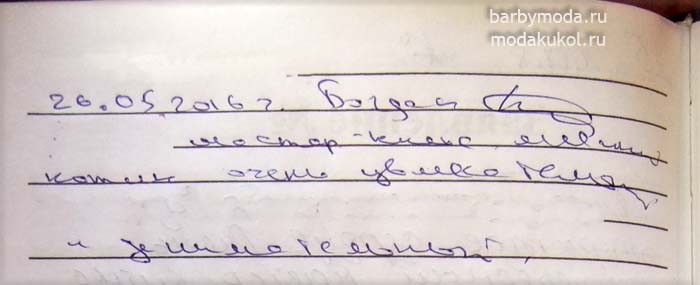 barbymoda.ru
modakukol.ru
26.05.2016г. Богдан
мастер-класс
котик очень увлекательный
и занимательный,